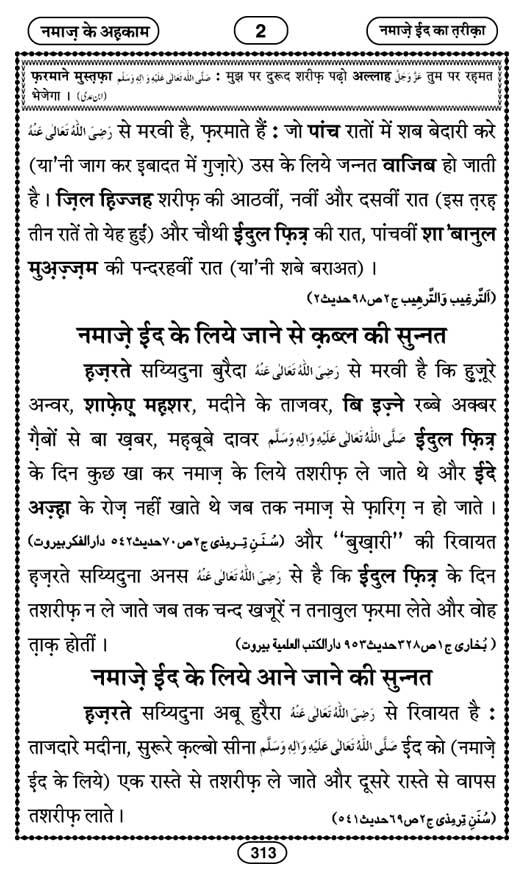 नमाज़ के अहकाम
2
नमाज़े ईद का त़रीक़ा
फ़रमाने मुस्त़फ़ा صَلَّى اللّٰهُ تَعَالٰى عَلَيْهِ وَاٰلِهٖ وَسَلَّم : मुझ पर दुरूद शरीफ़ पढ़ो अल्लाह عَزَّوَجَلَّ तुम पर रह़मत
भेजेगा । (ابن عدی)
رَضِیَ اللّٰهُ تَعَالٰی عَنْهُ से मरवी है, फ़रमाते हैं : जो पांच रातों में शब बेदारी करे
(या'नी जाग कर इबादत में गुज़ारे) उस के लिये जन्नत वाजिब हो जाती
है । ज़िल ह़िज्जह शरीफ़ की आठवीं, नवीं और दसवीं रात (इस त़रह़
तीन रातें तो येह हुईं) और चौथी ईदुल फ़ित़्र की रात, पांचवीं शा'बानुल
मुअ़ज़्ज़म की पन्दरहवीं रात (या'नी शबे बराअत) ।
(اَلتَّرغِیب وَالتَّرهِیب ج٢ص٩٨حدیث٢)
नमाज़े ईद के लिये जाने से क़ब्ल की सुन्नत
ह़ज़रते सय्यिदुना बुरैदा رَضِیَ اللّٰهُ تَعَالٰی عَنْهُ से मरवी है कि हुज़ूरे
अन्वर, शाफ़ेए़ मह़शर, मदीने के ताजवर, बि इज़्ने रब्बे अक्बर
ग़ैबों से बा ख़बर, मह़बूबे दावर صَلَّى اللّٰهُ تَعَالٰى عَلَيْهِ وَاٰلِهٖ وَسَلَّم ईदुल फ़ित़्र
के दिन कुछ खा कर नमाज़ के लिये तशरीफ़ ले जाते थे और ईदे
अज़्ह़ा के रोज़ नहीं खाते थे जब तक नमाज़ से फ़ारिग़ न हो जाते ।
(سُنَنِ تِرمِذی ج٢ص٧٠حدیث٥٤٢ دارالفکربیروت) और ‘‘बुख़ारी’’ की रिवायत
ह़ज़रते सय्यिदुना अनस رَضِیَ اللّٰهُ تَعَالٰی عَنْهُ से है कि ईदुल फ़ित़्र के दिन
तशरीफ़ न ले जाते जब तक चन्द खजूरें न तनावुल फ़रमा लेते और वोह
त़ाक़ होतीं । (بُخاری ج١ص٣٢٨حدیث٩٥٣ دارالکتب العلمیة بیروت)
नमाज़े ईद के लिये आने जाने की सुन्नत
ह़ज़रते सय्यिदुना अबू हुरैरा رَضِیَ اللّٰهُ تَعَالٰی عَنْهُ से रिवायत है :
ताजदारे मदीना, सुरूरे क़ल्बो सीना صَلَّى اللّٰهُ تَعَالٰى عَلَيْهِ وَاٰلِهٖ وَسَلَّم ईद को (नमाज़े
ईद के लिये) एक रास्ते से तशरीफ़ ले जाते और दूसरे रास्ते से वापस
तशरीफ़ लाते । (سُنَنِ تِرمِذی ج٢ص٦٩حدیث٥٤١)
313